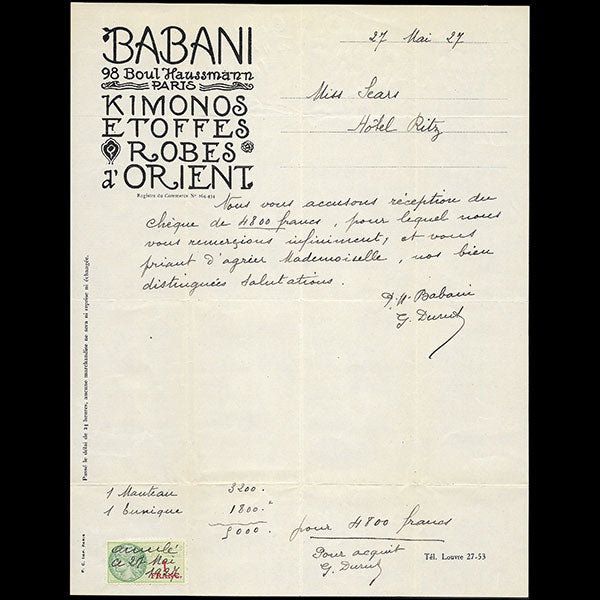 BABANI
98 Boul Haussmann
PARIS
KIMONOS
ETOFFES
ROBES
d'ORIENT
Registre du Commerce Nº 164-474
27 Mai 27
Miss Sears
Hôtel Ritz
Nous vous accusons réception du
chèque de 4800 francs, pour lequel nous
vous remercions infiniment, et vous
priant d'agréer Mademoiselle, nos bien
distinguées salutations.
Babani
G. Durut
Passé le délai de 24 heures, aucune marchandise ne sera ni reprise ni échangée.
1 Manteau 3200.
1 tunique 1800.
5000 pour 4800 francs
Pour acquit
G. Durut
annulé
27 Mai
1927
FRANC
P. C. Imp. PARIS
Tél. Louvre 27-53